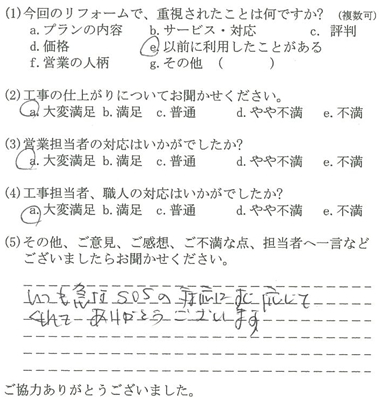 (1)今回のリフォームで、重視されたことは何ですか? (複数可)
a.プランの内容 b.サービス・対応 c. 評判
d.価格 e.以前に利用したことがある
f.営業の人柄 g.その他 ( )
(2)工事の仕上がりについてお聞かせください。
a.大変満足 b.満足 c.普通 d.やや不満 e.不満
(3)営業担当者の対応はいかがでしたか?
a.大変満足 b.満足 c.普通 d.やや不満 e.不満
(4)工事担当者、職人の対応はいかがでしたか?
a.大変満足 b.満足 c.普通 d.やや不満 e.不満
(5)その他、ご意見、ご感想、ご不満な点、担当者へ一言など
ございましたらお聞かせください。
いつも急なSOSの対応にすぐ応じて
くれて ありがとうございます
ご協力ありがとうございました。